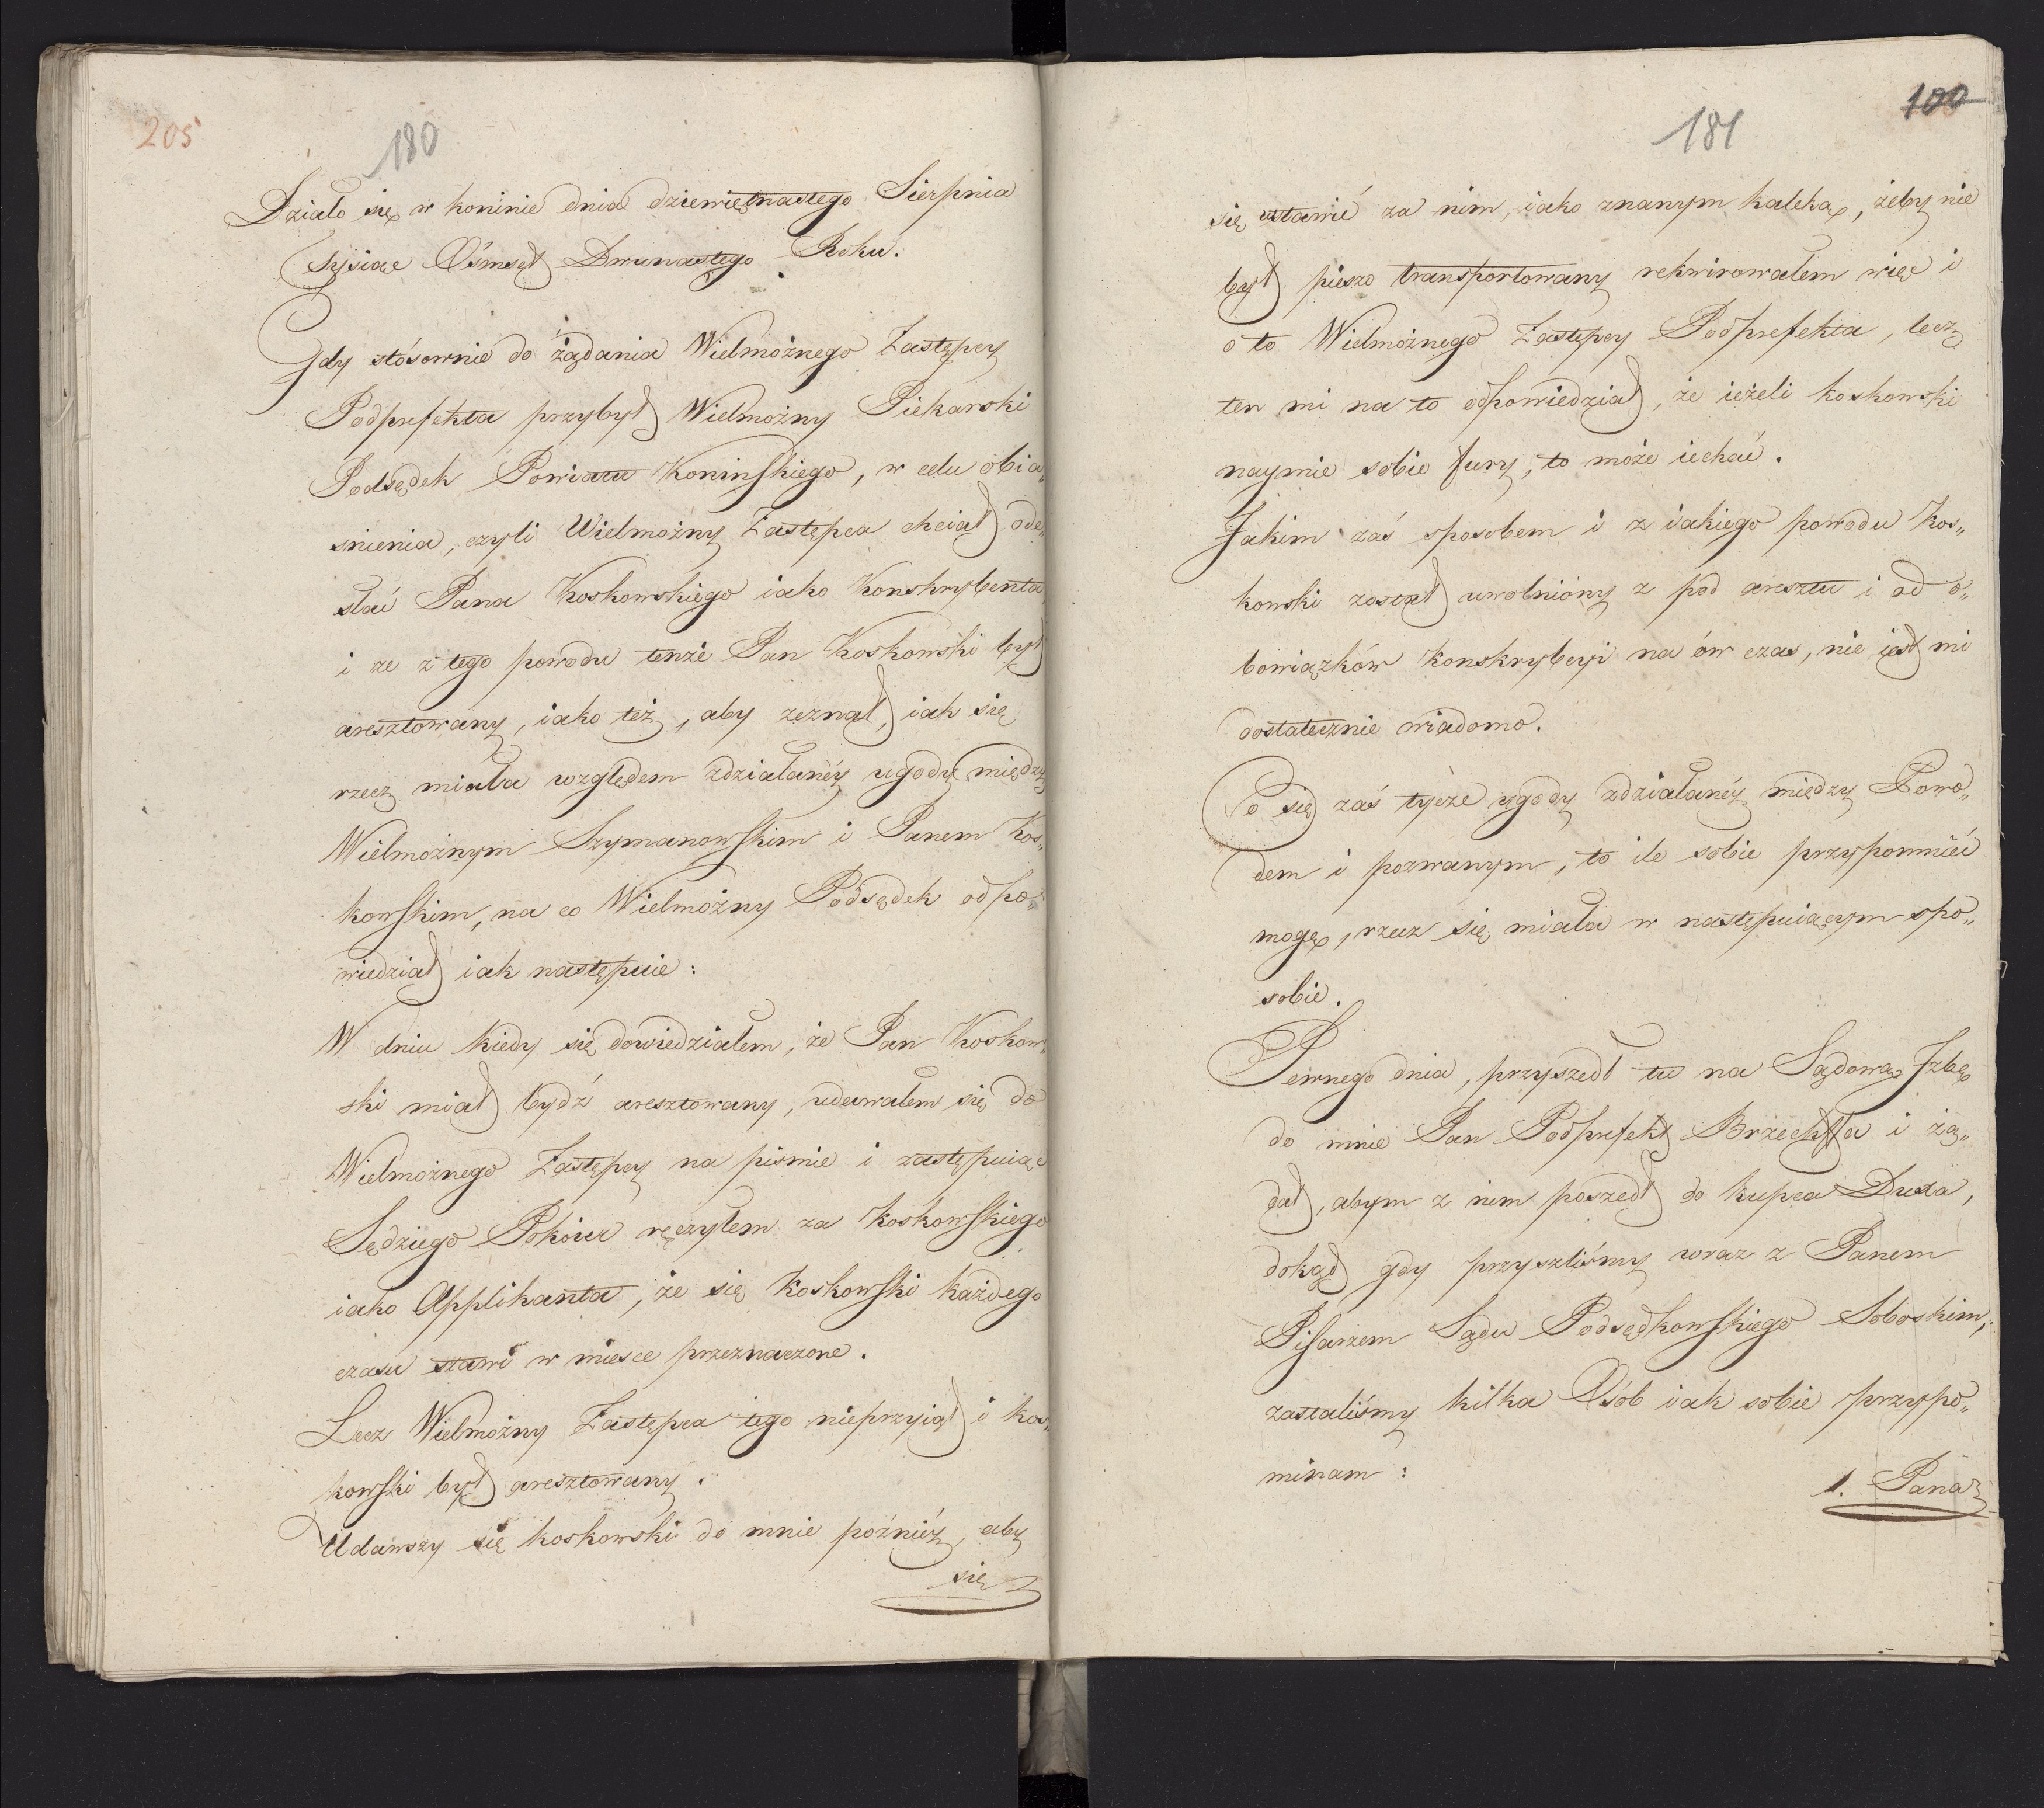 205
180
Działo się w koninie dnia dziewiętnastego Sierpnia
Tysiąc Ośmset Dwunastego Roku.
Gdy stósownie do żądania Wielmożnego Zastępcy
Podprefekta przybył Wielmożny Piekarski
Podsędek Powiatu Koninskiego, w celu obia„
snienia, czyli Wielmożny Zastępca chciał ode„
słać Pana Koskowskiego iako Konskrybenta
i ze z tego powodu tenże Pan Koskowski był
aresztowany, iako też, aby zeznał, iak się
rzecz miała względem zdziałanéy ugody między
Wielmożnym Szymanowskim i Panem Kos„
kowskim, na co Wielmożny Podsędek odpo„
wiedział iak następuie:
W dniu kiedy się dowiedziałem, że Pan Koskow„
ski miał bydź aresztowany, udawałem się do
Wielmożnego Zastępcy na pismie i zastępuiąc
Sędziego Pokoiu ręczyłem za Koskowskiego
iako Applikanta, że się Koskowski każdego
czasu stawi w miesce przeznaczone.
Lecz Wielmożny Zastępca tego nieprzyiął i kos„
kowski był aresztowany.
Udawszy się koskowski do mnie poźniéy, aby
się
100
181
się wstawić za nim, iako znanym kaleką, żeby nie
był pieszo transportowany rekwirowałem więc i
o to Wielmożnego Zastępcy Podprefekta, lecz
ten mi na to odpowiedział, że ieżeli koskowski
naymie sobie fury, to może iechać.
Jakim zaś sposobem i z iakiego powodu Kos„
kowski został uwolniony z pod aresztu i od o„
bowiązków Konskrybcyi na ów czas, nie iest mi
dostatecznie wiadomo.
Co się zaś tycze ugody zdziałanéy między Powo„
dem i pozwanym, to ile sobie przypomnieć
mogę, rzecz się miała w następuiącym spo„
sobie.
Pewnego dnia, przyszedł tu na Sądową Izbę
do mnie Pan Podprefekt Brzechffa i żą„
dał, abym z nim poszedł do kupca Duxta,
dokąd gdy przyszliśmy wraz z Panem
Pisarzem Sądu Podsędkowskiego Soboskim,
zastaliśmy kilka Osób iak sobie przypo„
minam:
1. Pana